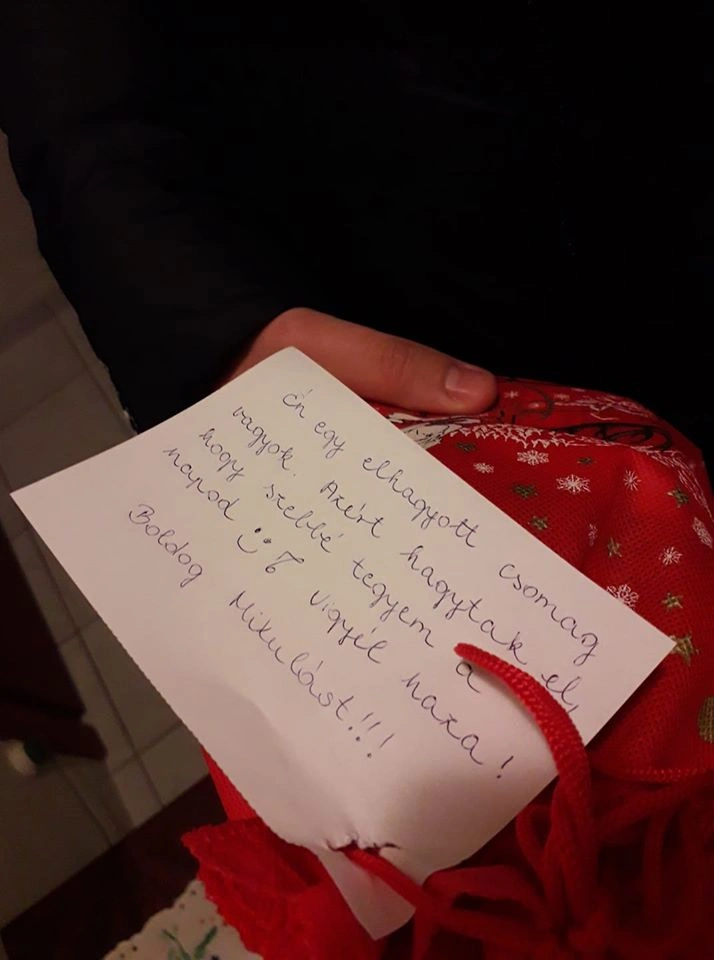 Én egy elhagyott csomag
vagyok. Azért hagytak el,
hogy szebbé tegyem a
napod :) Vigyél haza!
Boldog Mikulást!!!